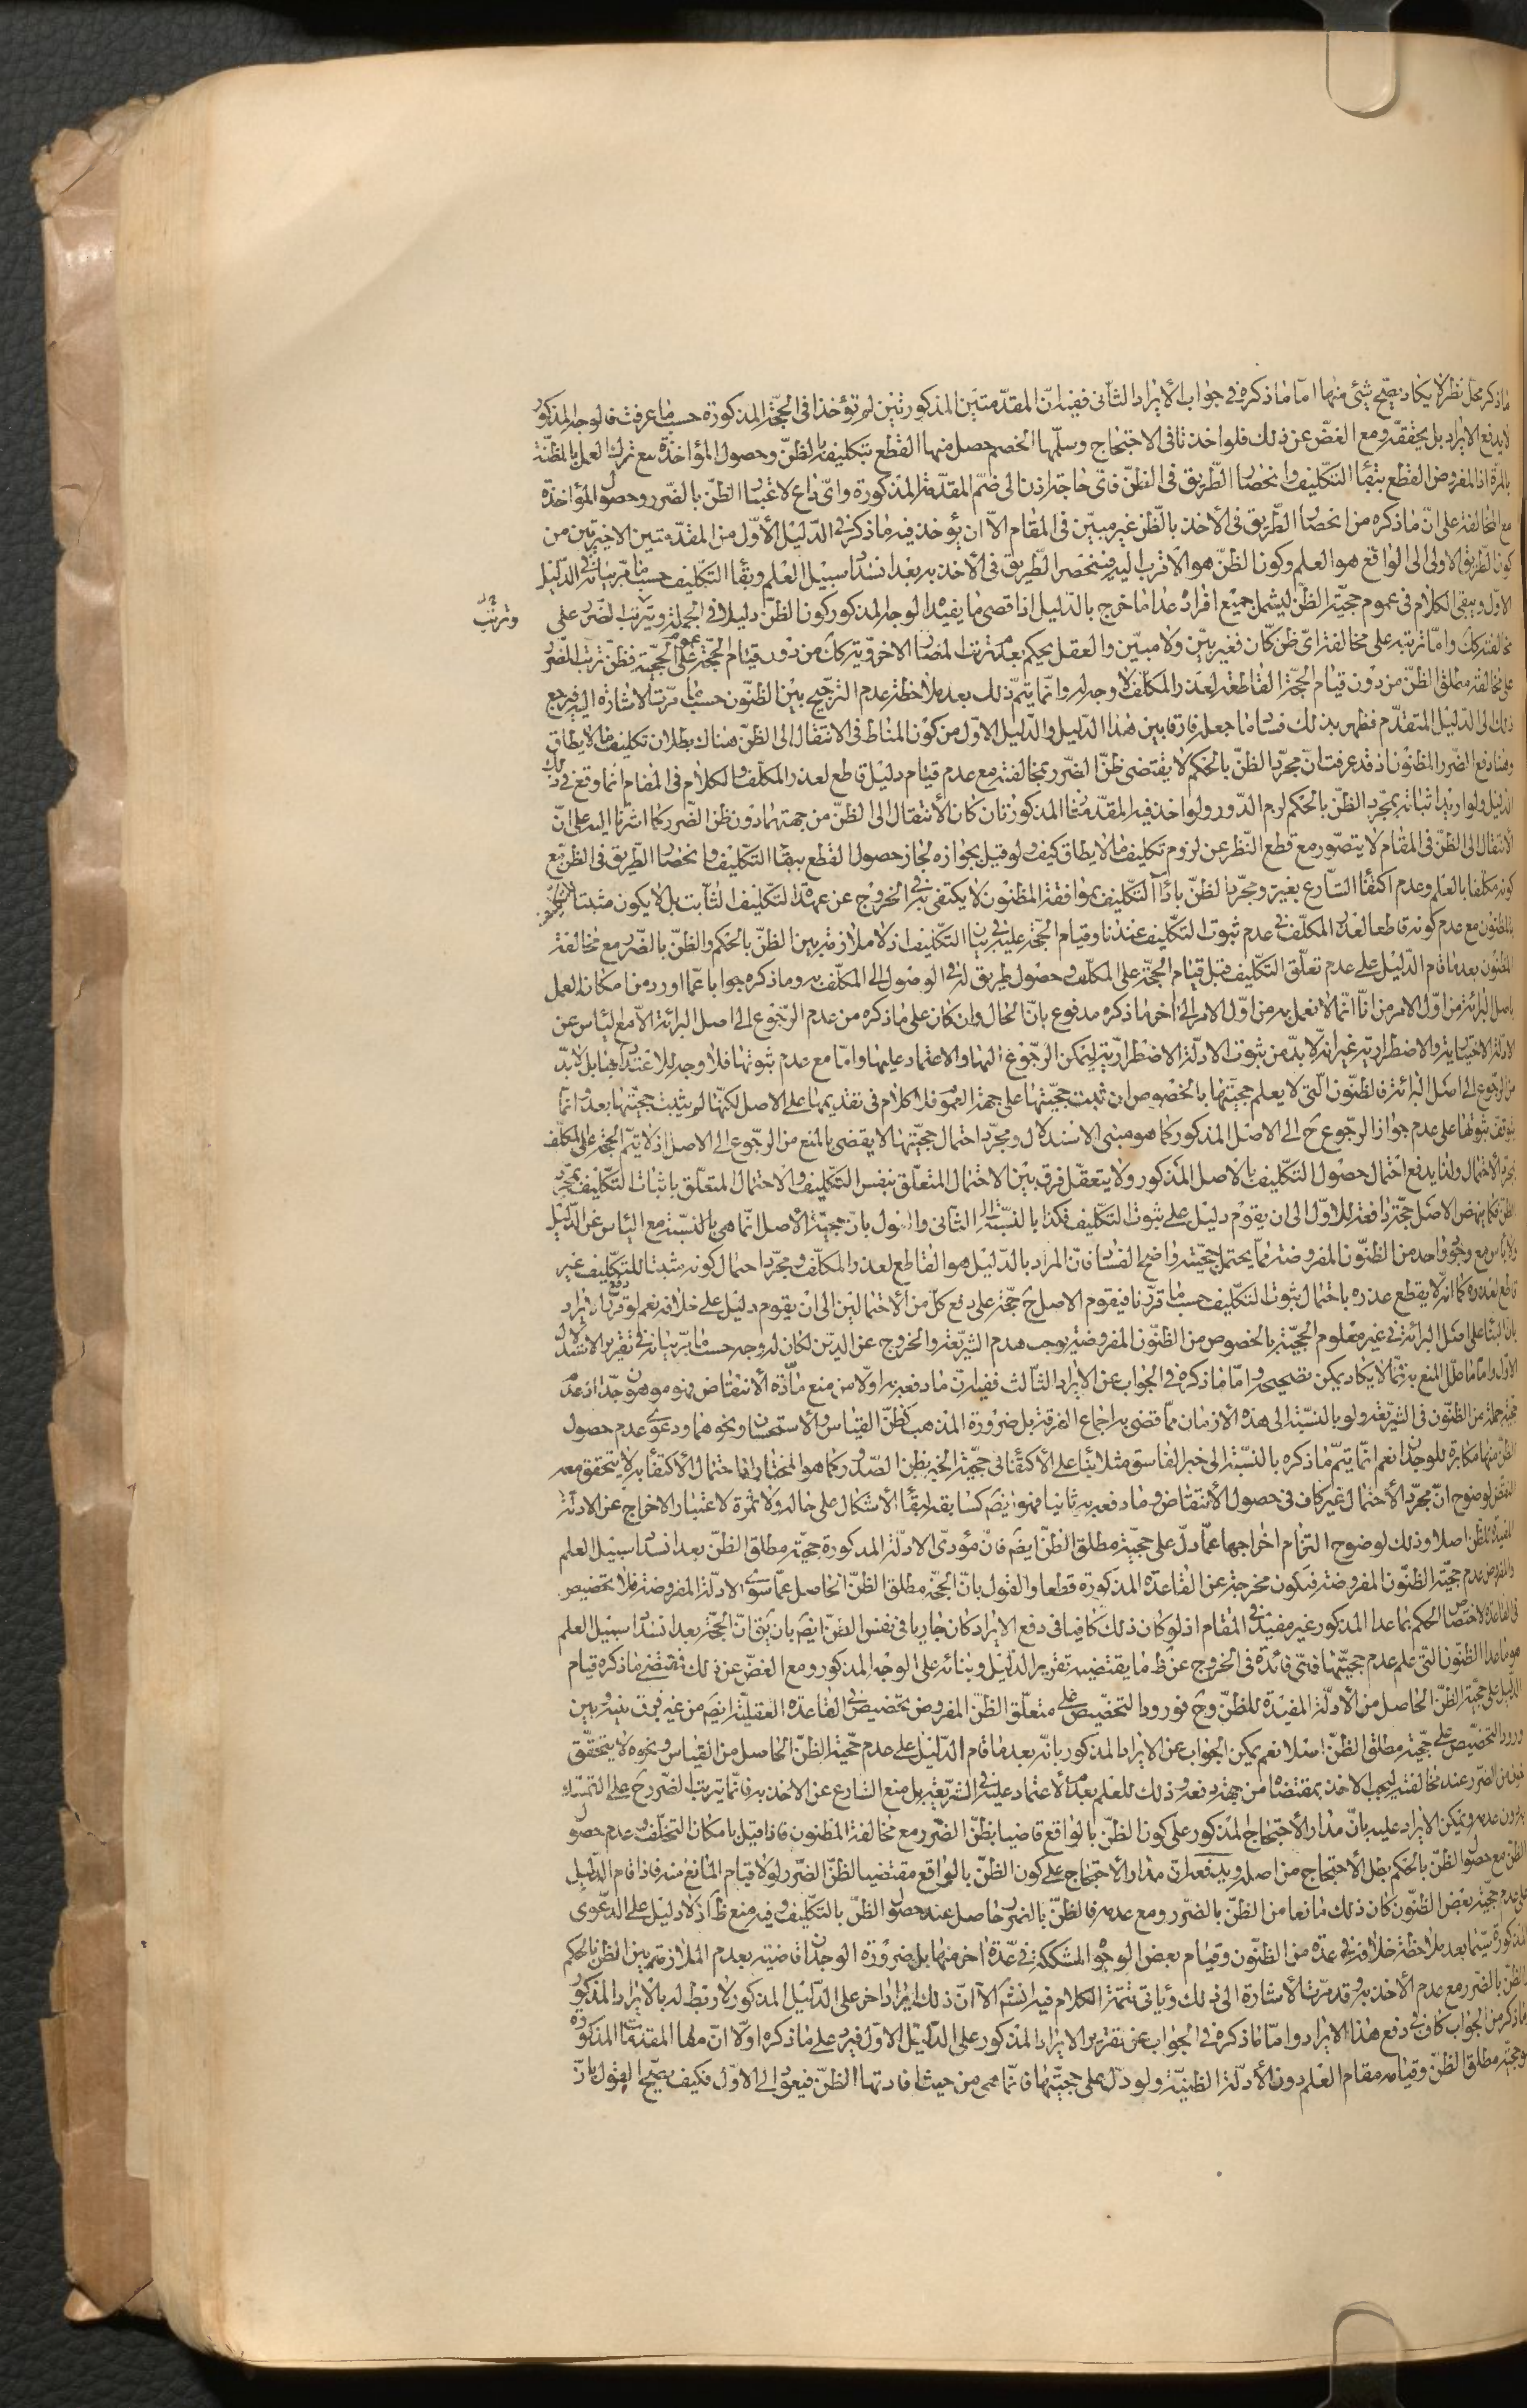 ما ذكر محل نظر لا يكاد يصح شئ منها اما ما ذكره فى جواب الايراد الثانى ففيه ان المقدمتين المذكورتين لم تؤخذا فى الحجة المذكورة حسبما عرفت فالوجه المذكور
لا يدفع الايراد بل يحققه ومع الغض عن ذلك فلو اخذتا فى الاحتجاج وسلمها الخصم حصل منها القطع بتكليفه بالظن وحصول المؤاخذة مع ترك العمل بالمظنة
بالمرة اذ المفروض القطع ببقاء التكليف وانحصار الطريق فى الظن فاى حاجة اذن الى ضم المقدمة المذكورة واى داع لاعتبار الظن بالضرر وحصول المؤاخذة
مع المخالفة على ان ما ذكره من انحصار الطريق فى الاخذ بالظن غير مبين فى المقام الا ان يؤخذ فيه ما ذكر فى الدليل الاول من المقدمتين الاخيرتين من
كون الطريق الاولى الى الواقع هو العلم وكون الظن هو الاقرب اليه فينحصر الطريق فى الاخذ به بعد انسداد سبيل العلم وبقاء التكليف حسبما مر بيانه فى الدليل
الاول ويبقى الكلام فى عموم حجية الظن ليشمل جميع افراده عدا ما خرج بالدليل اذ اقصى ما يفيد الوجه المذكور كون الظن دليلا فى الجملة ويترتب الضرر على
مخالفته كك واما ترتبه على مخالفة اى ظن كان فغير بين ولا مبين والعقل يحكم بعدم ترتب المضار الاخروية كك من دون قيام الحجة على عموم الحجية فظن ترتب الضرر
على مخالفة مطلق الظن من دون قيام الحجة القاطعة لعذر المكلف لا وجه له وانما يتم ذلك بعد ملاحظة عدم الترجيح بين الظنون حسبما مرت الاشارة اليه فيرجع
ذلك الى الدليل المتقدم فظهر بذلك فساد ما جعله فارقا بين هذا الدليل والدليل الاول من كون المناط فى الانتقال الى الظن هناك بطلان تكليف ما لا يطاق
وهنا دفع الضرر المظنون اذ قد عرفت ان مجرد الظن بالحكم لا يقتضى ظن الضرر بمخالفته مع عدم قيام دليل قاطع لعذر المكلف والكلام فى المقام انما وقع فى ذلك
الدليل ولو اريد اثباته بمجرد الظن بالحكم لزم الدور ولو اخذ فيه المقدمتان المذكورتان كان الانتقال الى الظن من جهتهما دون ظن الضرر كما اشرنا اليه على ان
الانتقال الى الظن فى المقام لا يتصور مع قطع النظر عن لزوم تكليف ما لا يطاق كيف ولو قيل بجوازه لجاز حصول القطع ببقاء التكليف وانحصار الطريق فى الظن مع
كونه مكلفا بالعلم وعدم اكتفاء الشارع بغيره ومجرد الظن باداء التكليف بموافقة المظنون لا يكتفى به فى الخروج عن عهدة التكليف الثابت بل لا يكون مثبتا للتكليف
بالمظنون مع عدم كونه قاطعا لعذر المكلف فى عدم ثبوت التكليف عندنا وقيام الحجة عليه فى بيان التكليف اذ لا ملازمة بين الظن بالحكم والظن بالضرر مع مخالفة
المظنون بعد ما قام الدليل على عدم تعلق التكليف قبل قيام الحجة على المكلف وحصول طريق له فى الوصول الى المكلف به وما ذكره جوابا عما اورد من امكان العمل
باصل البرائة من اول الامر من انا انما لا نعمل به من اول الامر الى اخر ما ذكره مدفوع بان الحال وان كان على ما ذكره من عدم الرجوع الى اصل البرائة الا مع الياس عن
الادلة الاختيارية والاضطرارية غير انه لا بد من ثبوت الادلة الاضطرارية ليمكن الرجوع اليها والاعتماد عليها واما مع عدم ثبوتها فلا وجه للاعتداد بها بل لا بد
من الرجوع الى اصل البرائة فالظنون التى لا يعلم حجيتها بالخصوص ان ثبت حجيتها على جهة العموم فلا كلام فى تقديمها على الاصل لكنها لم يثبت حجيتها بعد وانما
يتوقف ثبوتها على عدم جواز الرجوع ح الى الاصل المذكور كما هو مبنى الاستدلال ومجرد احتمال حجيتها لا يقضى بالمنع من الرجوع الى الاصل اذ لا يتم الحجة على المكلف
بمجرد الاحتمال ولذا يدفع احتمال حصول التكليف بالاصل المذكور ولا يتعقل فرق بين الاحتمال المتعلق بنفس التكليف والاحتمال المتعلق باثبات التكليف بمجرد
الظن فكما ينهض الاصل حجة دافعة للاول الى ان يقوم دليل على ثبوت التكليف فكذا بالنسبة الى الثانى والقول بان حجية الاصل انما هى بالنسبة مع الياس عن الدليل
ولا ياس مع وجود واحد من الظنون المفروضة مما يحتمل حجيته واضح الفساد فان المراد بالدليل هو القاطع لعذر المكلف ومجرد احتمال كونه مثبتا للتكليف غير
قاطع لعذره كما انه لا يقطع عذره باحتمال ثبوت التكليف حسبما قررنا فيقوم الاصل ح حجة على دفع كل من الاحتمالين الى ان يقوم دليل على خلافه نعم لو قرر الايراد
بان البناء على اصل البرائة فى غير معلوم الحجية بالخصوص من الظنون المفروضة يوجب هدم الشريعة والخروج عن الدين لكان له وجه حسبما مر بيانه فى تقرير الاستدلال
الاول واما ما علل المنع به ثما لا يكاد يمكن تصحيحه واما ما ذكره فى الجواب عن الايراد الثالث ففيه ان ما دفعه به اولا من منع مادة الانتقاض فهو موهون جدا اذ عدم
حجية جملة من الظنون فى الشريعة ولو بالنسبة الى هذه الازمان مما قضى به اجماع الفرقة بل ضرورة المذهب كظن القياس والاستحسان ونحوهما ودعوى عدم حصول
الظن منها مكابرة للوجدان نعم انما يتم ما ذكره بالنسبة الى خبر الفاسق مثلا بناء على الاكتفاء فى حجية الخبر بظن الصدور كما هو المختار واما احتمال الاكتفاء به لا يتحقق معه
النقض لوضوح ان مجرد الاحتمال غير كاف فى حصول الانتقاض وما دفعه به ثانيا فهو ايضا كسابقه لبقاء الاشكال على حاله ولا ثمرة لاعتبار الاخراج عن الادلة
المفيدة للظن اصلا وذلك لوضوح التزام اخراجها عما دل على حجية مطلق الظن ايضا فان مؤدى الادلة المذكورة حجية مطلق الظن بعد انسداد سبيل العلم
والمفروض عدم حجية الظنون المفروضة فيكون مخرجة عن القاعدة المذكورة قطعا والقول بان الحجة مطلق الظن الحاصل عما سوى الادلة المفروضة فلا تخصيص
فى القاعدة لاختصاص الحكم بما عدا المذكور غير مفيد فى المقام اذ لو كان ذلك كافيا فى دفع الايراد كان جاريا فى نفس الظن ايضا بان يق ان الحجة بعد انسداد سبيل العلم
هو ما عدا الظنون التى علم عدم حجيتها فاى فائدة فى الخروج عن ظ ما يقتضيه تقرير الدليل وبنائه على الوجه المذكور ومع الغض عن ذلك فقضية ما ذكره قيام
الدليل على حجية الظن الحاصل من الادلة المفيدة للظن وح فورود التخصيص على متعلق الظن المفروض تخصيص فى القاعدة العقلية ايضا من غير فرق بينه وبين
ورود التخصيص على حجية مطلق الظن اصلا نعم يمكن الجواب عن الايراد المذكور بانه بعد ما قام الدليل على عدم حجية الظن الحاصل من القياس ونحوه لا يتحقق
ظن الضرر عند مخالفته ليجب الاخذ بمقتضاه من جهة دفعه وذلك للعلم بعدم الاعتماد عليه فى الشريعة بل منع الشارع عن الاخذ به فانما يترتب الضرر ح على التمسك
به دون عدمه ويمكن الايراد عليه بان مدار الاحتجاج المذكور على كون الظن بالواقع قاضيا بظن الضرر مع مخالفة المظنون فاذا قيل بامكان التخلف وعدم حصول
الظن مع حصول الظن بالحكم بطل الاحتجاج من اصله ويدفعه ان مدار الاحتجاج على كون الظن بالواقع مقتضيا لظن الضرر لولا قيام المانع منه فاذا قام الدليل
على عدم حجية بعض الظنون كان ذلك مانعا من الظن بالضرر ومع عدمه فالظن بالضرر حاصل عند حصول الظن بالتكليف وفيه منع ظ اذ لا دليل على الدعوى
المذكورة سيما بعد ملاحظة خلافه فى عدة من الظنون وقيام بعض الوجوه المشككة فى عدة اخر منها بل ضرورة الوجدان قاضية بعدم الملازمة بين الظن بالحكم
والظن بالضرر مع عدم الاخذ به وقد مرت الاشارة الى ذلك وياتى تتمة الكلام فيه انش الا ان ذلك ايراد اخر على الدليل المذكور لا ربط له بالايراد المذكور
وما ذكر من الجواب كاف فى دفع هذا الايراد واما ما ذكره فى الجواب عن تقرير الايراد المذكور على الدليل الاول فيرد على ما ذكره اولا ان مفاد المقدمات المذكورة
هو حجية مطلق الظن وقيامه مقام العلم دون الادلة الظنية ولو دل على حجيتها فانما هى من حيث افادتها الظن فيعود الى الاول فكيف يصح القول بان
وترتب